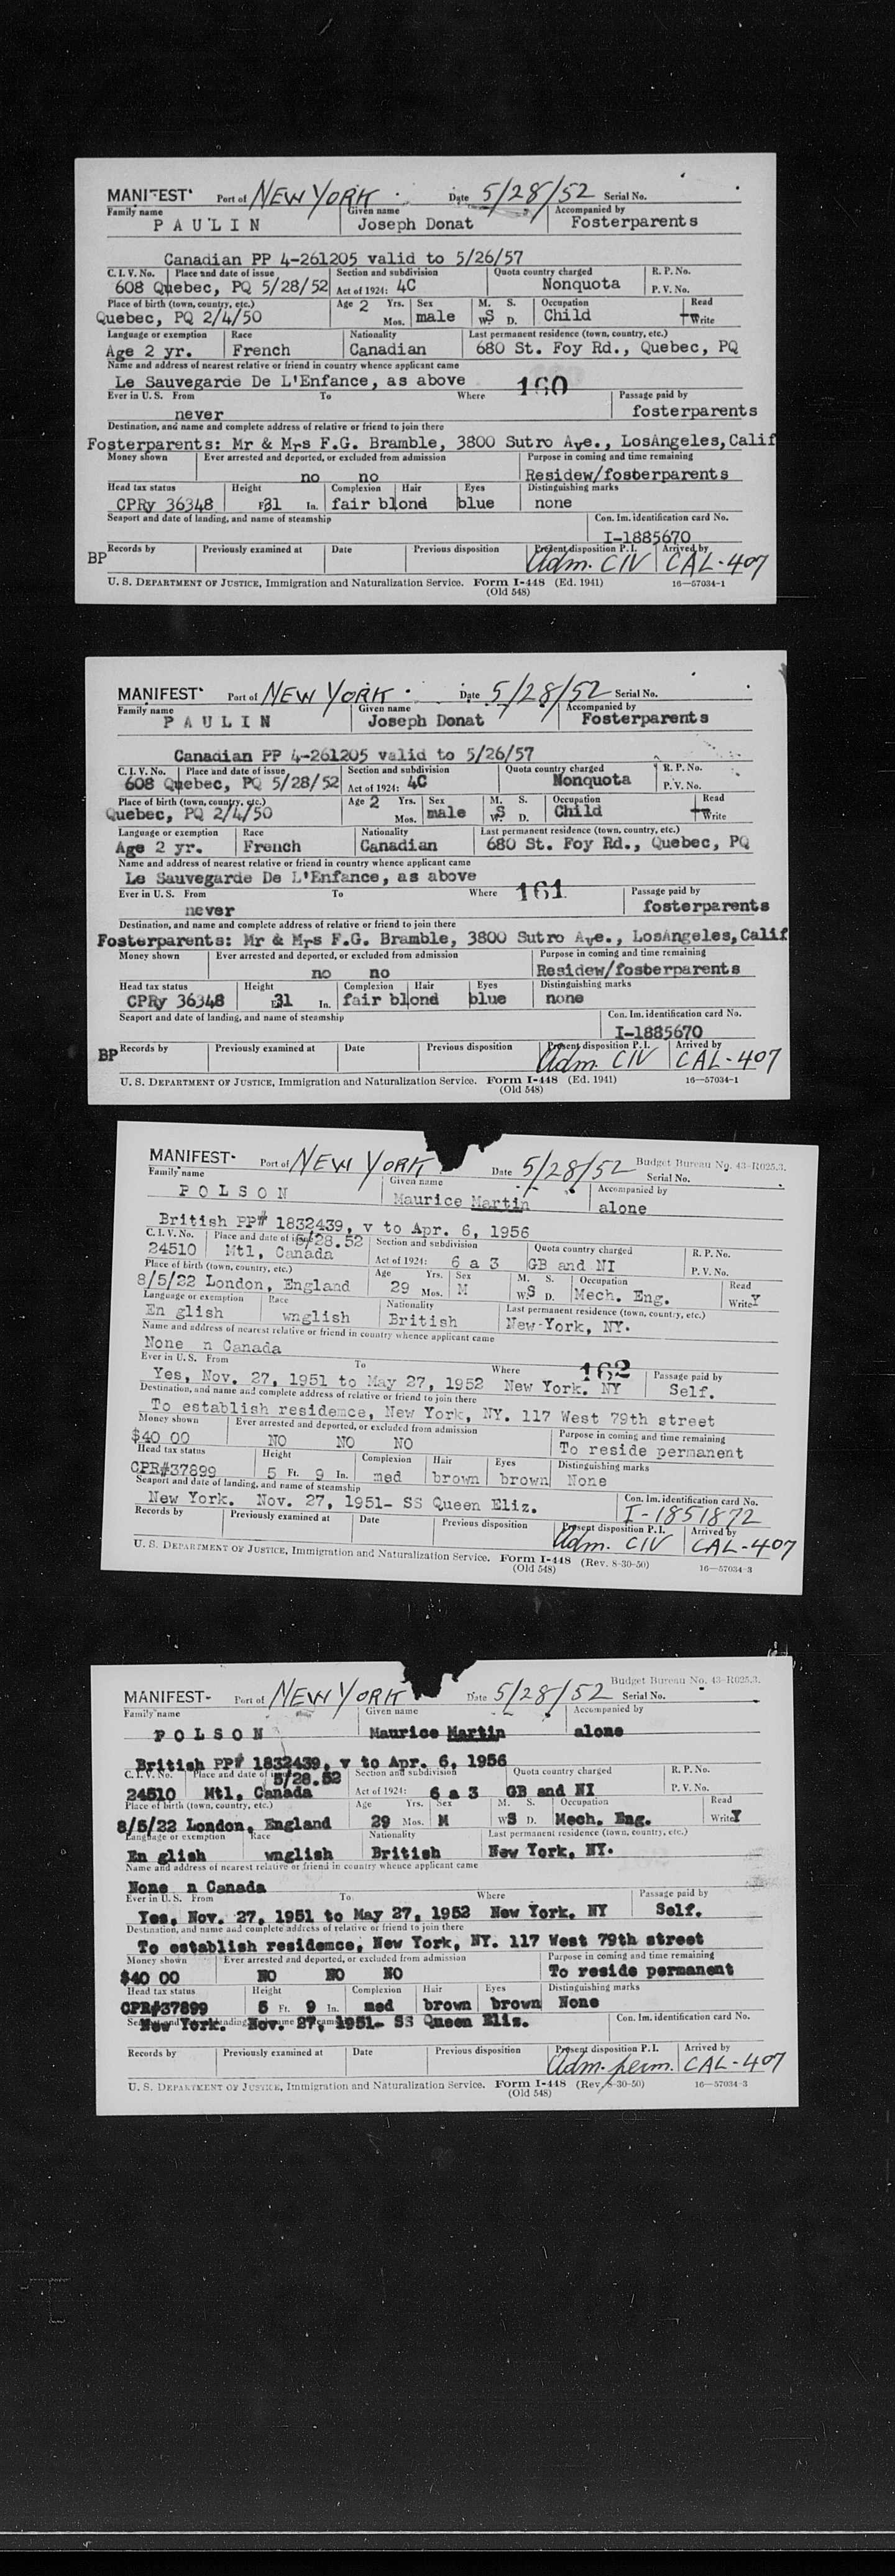 MANIFEST Port of NEW YORK Date 5/28/52 Serial No.
Family name Given name Accompanied by
PAULIN Joseph Donat Fosterparents
Canadian PP 4-261205 valid to 5/26/57
C. I. V. No. Place and date of issue Section and subdivision Quota country charged R. P. No.
608 Quebec, PQ 5/28/52 Act of 1924: 4C Nonquota P. V. No.
Place of birth (town, country, etc.) Age 2 Yrs. Sex M. S. Occupation Read
Quebec, PQ 2/4/50 Mos. male W. S D. Child Write
Language or exemption Race Nationality Last permanent residence (town, country, etc.)
Age 2 yr. French Canadian 680 St. Foy Rd., Quebec, PQ
Name and address of nearest relative or friend in country whence applicant came
Le Sauvegarde De L'Enfance, as above 160
Ever in U. S. From To Where Passage paid by
never fosterparents
Destination, and name and complete address of relative or friend to join there
Fosterparents: Mr & Mrs F.G. Bramble, 3800 Sutro Ave., LosAngeles, Calif
Money shown Ever arrested and deported, or excluded from admission Purpose in coming and time remaining
no no Residew/fosberparents
Head tax status Height Complexion Hair Eyes Distinguishing marks
CPRy 36348 31 In. fair blond blue none
Seaport and date of landing, and name of steamship Con. Im. identification card No.
I-1885670
BP Records by Previously examined at Date Previous disposition Present disposition P. I. Arrived by
Adm. CIV CAL-407
U. S. DEPARTMENT OF JUSTICE, Immigration and Naturalization Service. Form I-448 (Ed. 1941) 16—57034-1
(Old 548)
MANIFEST Port of NEW YORK Date 5/28/52 Serial No.
Family name Given name Accompanied by
PAULIN Joseph Donat Fosterparents
Canadian PP 4-261205 valid to 5/26/57
C. I. V. No. Place and date of issue Section and subdivision Quota country charged R. P. No.
608 Quebec, PQ 5/28/52 Act of 1924: 4C Nonquota P. V. No.
Place of birth (town, country, etc.) Age 2 Yrs. Sex M. S. Occupation Read
Quebec, PQ 2/4/50 Mos. male W. S D. Child Write
Language or exemption Race Nationality Last permanent residence (town, country, etc.)
Age 2 yr. French Canadian 680 St. Foy Rd., Quebec, PQ
Name and address of nearest relative or friend in country whence applicant came
Le Sauvegarde De L'Enfance, as above
Ever in U. S. From To Where 161 Passage paid by
never fosterparents
Destination, and name and complete address of relative or friend to join there
Fosterparents: Mr & Mrs F.G. Bramble, 3800 Sutro Ave., LosAngeles, Calif
Money shown Ever arrested and deported, or excluded from admission Purpose in coming and time remaining
no no Residew/fosberparents
Head tax status Height Complexion Hair Eyes Distinguishing marks
CPRy 36348 31 In. fair blond blue none
Seaport and date of landing, and name of steamship Con. Im. identification card No.
I-1885670
BP Records by Previously examined at Date Previous disposition Present disposition P. I. Arrived by
Adm. CIV CAL-407
U. S. DEPARTMENT OF JUSTICE, Immigration and Naturalization Service. Form I-448 (Ed. 1941) 16—57034-1
(Old 548)
Budget Bureau No. 43-R025.3.
MANIFEST Port of NEW YORK Date 5/28/52 Serial No.
Family name Given name Accompanied by
POLSON Maurice Martin alone
British PP# 1832439, v to Apr. 6, 1956
C. I. V. No. Place and date of issue 5/28.52 Section and subdivision Quota country charged R. P. No.
24510 Mtl, Canada Act of 1924: 6 a 3 GB and NI P. V. No.
Place of birth (town, country, etc.) Age Yrs. Sex M. S. Occupation Read
8/5/22 London, England 29 Mos. M W. S D. Mech. Eng. Write Y
Language or exemption Race Nationality Last permanent residence (town, country, etc.)
En glish wnglish British New-York, NY.
Name and address of nearest relative or friend in country whence applicant came
None n Canada
Ever in U. S. From To Where 162 Passage paid by
Yes, Nov. 27, 1951 to May 27, 1952 New York. NY Self.
Destination, and name and complete address of relative or friend to join there
To establish residemce, New York, NY. 117 West 79th street
Money shown Ever arrested and deported, or excluded from admission Purpose in coming and time remaining
$40 00 NO NO NO To reside permanent
Head tax status Height Complexion Hair Eyes Distinguishing marks
CPR#37899 5 Ft. 9 In. med brown brown None
Seaport and date of landing, and name of steamship Con. Im. identification card No.
New York. Nov. 27, 1951- SS Queen Eliz. I-1851872
Records by Previously examined at Date Previous disposition Present disposition P. I. Arrived by
Adm. CIV CAL-407
U. S. DEPARTMENT OF JUSTICE, Immigration and Naturalization Service. Form I-448 (Rev. 8-30-50) 16—57034-3
(Old 548)
Budget Bureau No. 43-R025.3.
MANIFEST Port of NEW YORK Date 5/28/52 Serial No.
Family name Given name Accompanied by
POLSON Maurice Martin alone
British PP# 1832439, v to Apr. 6, 1956
C. I. V. No. Place and date of issue 5/28.52 Section and subdivision Quota country charged R. P. No.
24510 Mtl, Canada Act of 1924: 6 a 3 GB and NI P. V. No.
Place of birth (town, country, etc.) Age Yrs. Sex M. S. Occupation Read
8/5/22 London, England 29 Mos. M W. S D. Mech. Eng. Write Y
Language or exemption Race Nationality Last permanent residence (town, country, etc.)
En glish wnglish British New York, NY.
Name and address of nearest relative or friend in country whence applicant came
None n Canada
Ever in U. S. From To Where Passage paid by
Yes, Nov. 27, 1951 to May 27, 1952 New York. NY Self.
Destination, and name and complete address of relative or friend to join there
To establish residemce, New York, NY. 117 West 79th street
Money shown Ever arrested and deported, or excluded from admission Purpose in coming and time remaining
$40 00 NO NO NO To reside permanent
Head tax status Height Complexion Hair Eyes Distinguishing marks
CPR#37899 5 Ft. 9 In. med brown brown None
New York. Nov. 27, 1951- SS Queen Eliz. Con. Im. identification card No.
Records by Previously examined at Date Previous disposition Present disposition P. I. Arrived by
Adm. perm. CAL-407
U. S. DEPARTMENT OF JUSTICE, Immigration and Naturalization Service. Form I-448 (Rev. 8-30-50) 16—57034-3
(Old 548)